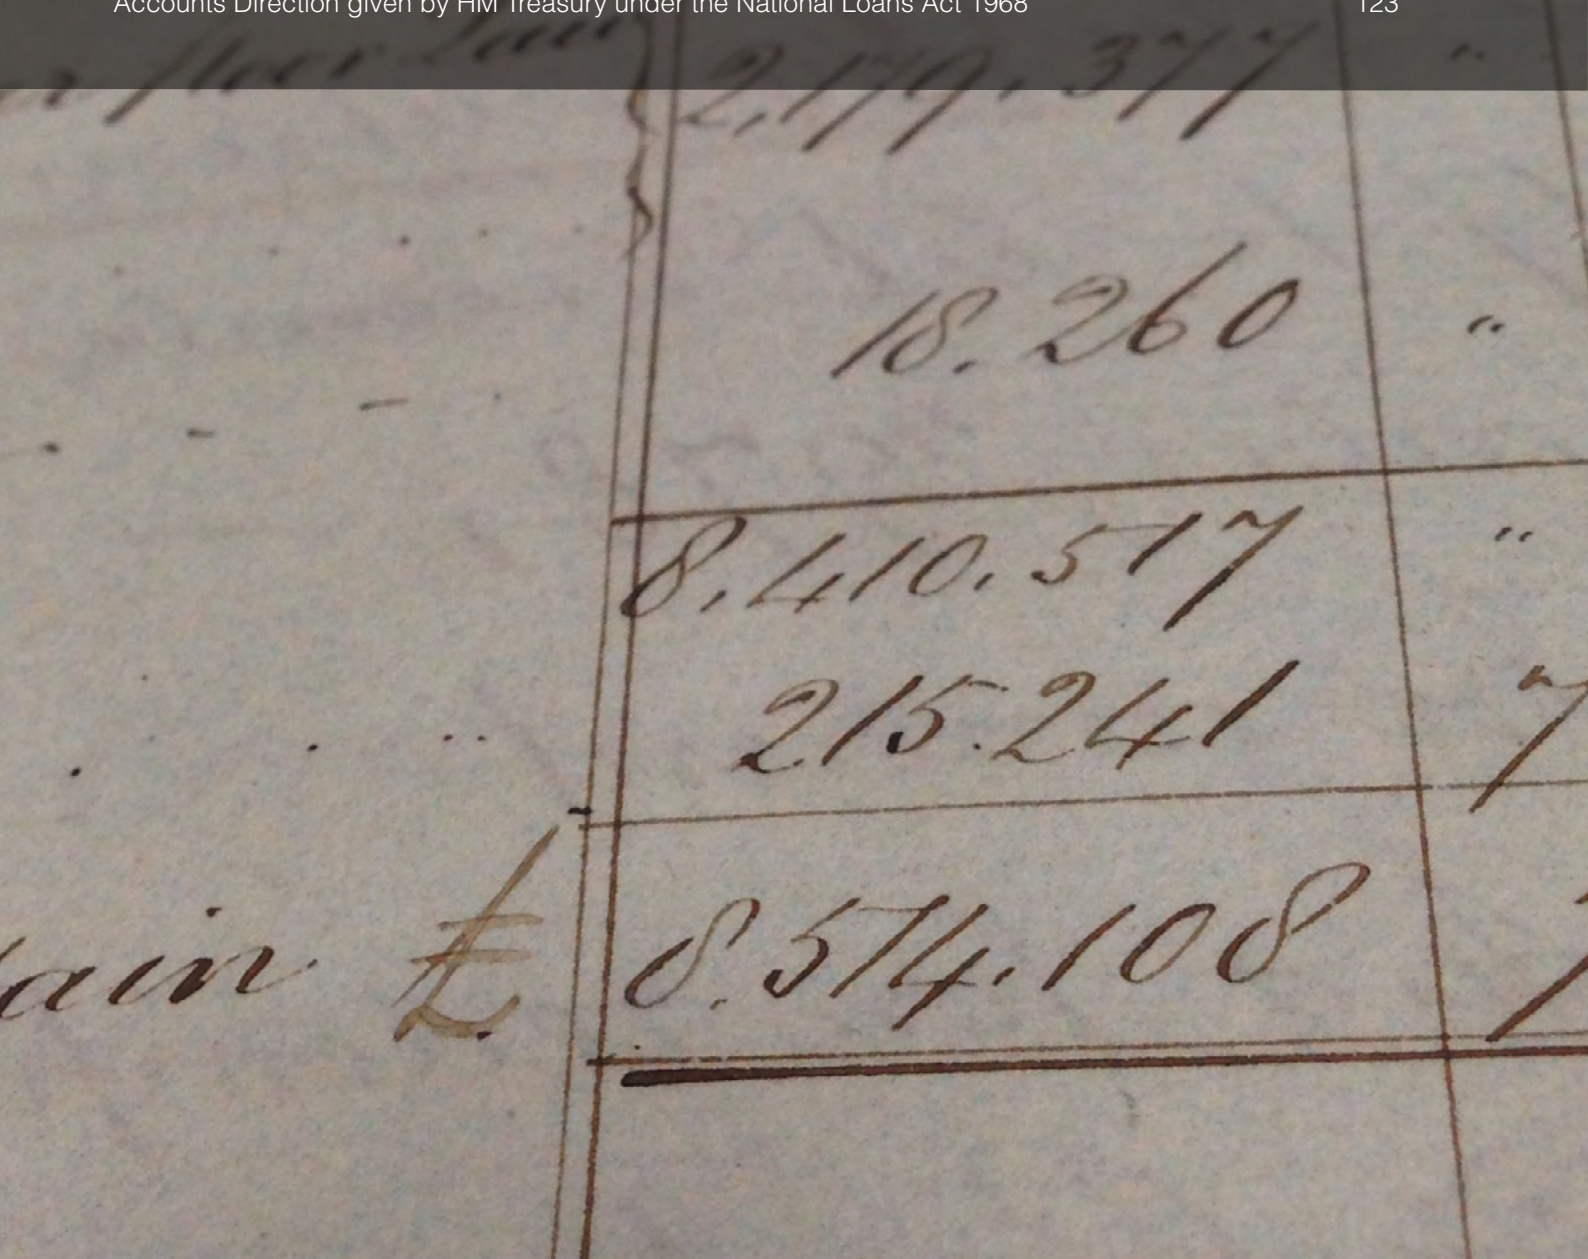 Accounts Direction given by HM Treasury under the National Loans Act 1968 123
2,179,377 "
18.260 "
8,410,517 "
215.241 7
tain £ 8.574.108 7